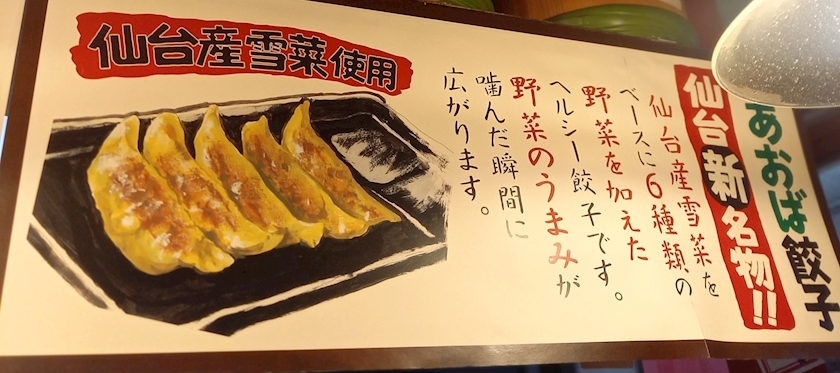 あおば餃子
仙台新名物!!
仙台産雪菜を
ベースに6種類の
野菜を加えた
ヘルシー餃子です。
野菜のうまみが
噛んだ瞬間に
広がります。
仙台産雪菜使用